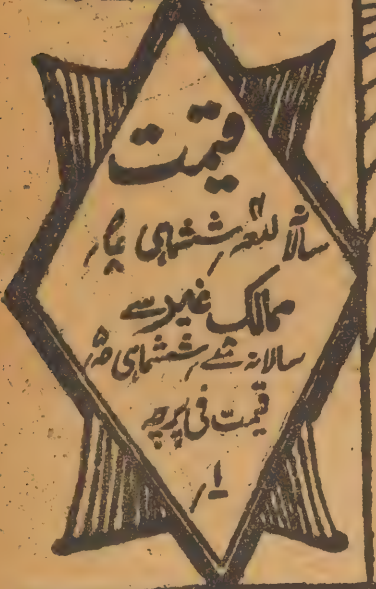 قیمت
سالانہ للعہ ششماہی عہ/
ممالک غیر سے
سالانہ ششماہی
قیمت فی پرچہ
۱/